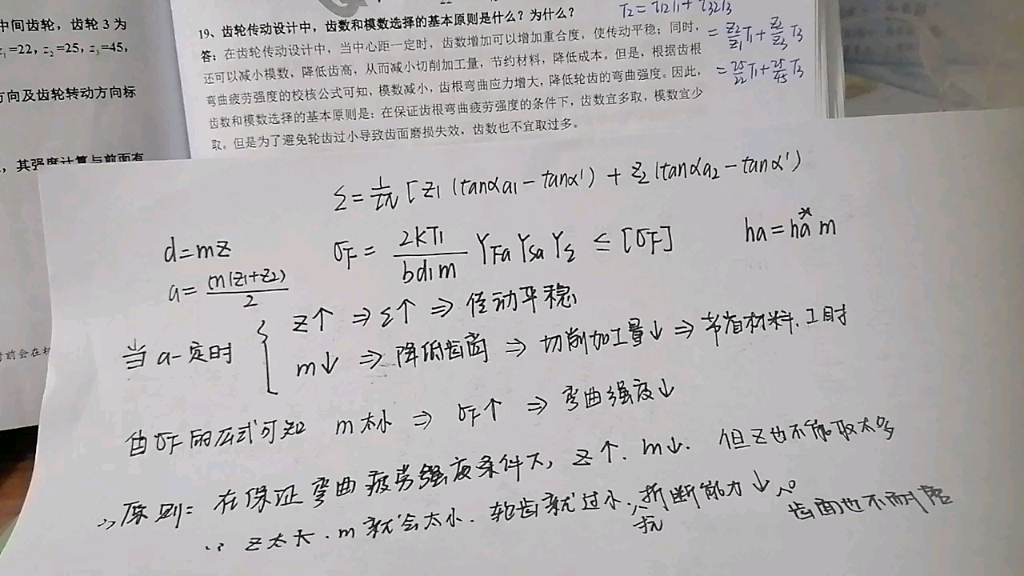 中间齿轮，齿轮 3 为
z₁=22，z₂=25，z₃=45，
方向及齿轮转动方向标
其强度计算与前面有
19、齿轮传动设计中，齿数和模数选择的基本原则是什么？为什么？
答：在齿轮传动设计中，当中心距一定时，齿数增加可以增加重合度，使传动平稳；同时，
还可以减小模数，降低齿高，从而减小切削加工量，节约材料，降低成本。但是，根据齿根
弯曲疲劳强度的校核公式可知，模数减小，齿根弯曲应力增大，降低轮齿的弯曲强度。因此，
齿数和模数选择的基本原则是：在保证齿根弯曲疲劳强度的条件下，齿数宜多取，模数宜少
取。但是为了避免轮齿过小导致齿面磨损失效，齿数也不宜取过多。
T₂ = i₁₂T₁ + i₃₂T₃
= z₂/z₁ T₁ + z₂/z₃ T₃
= 25/22 T₁ + 25/45 T₃
Σ = 1/2π [z₁(tanαa₁ - tanα') + z₂(tanαa₂ - tanα')
d=mz
σF = 2kT₁/bd₁m YFa YSa Yε ≤ [σF]
ha = ha* m
a = m(z₁+z₂)/2
当 a一定时
z↑ ⇒ ε↑ ⇒ 传动平稳
m↓ ⇒ 降低齿高 ⇒ 切削加工量↓ ⇒ 节省材料、工时
由σF的公式可知 m太小 ⇒ σF↑ ⇒ 弯曲强度↓
∴原则：在保证弯曲疲劳强度条件下，z↑、m↓. 但z也不能取太多
∵ z太大，m就会太小．轮齿就过小，抗折断能力↓。
齿面也不耐磨